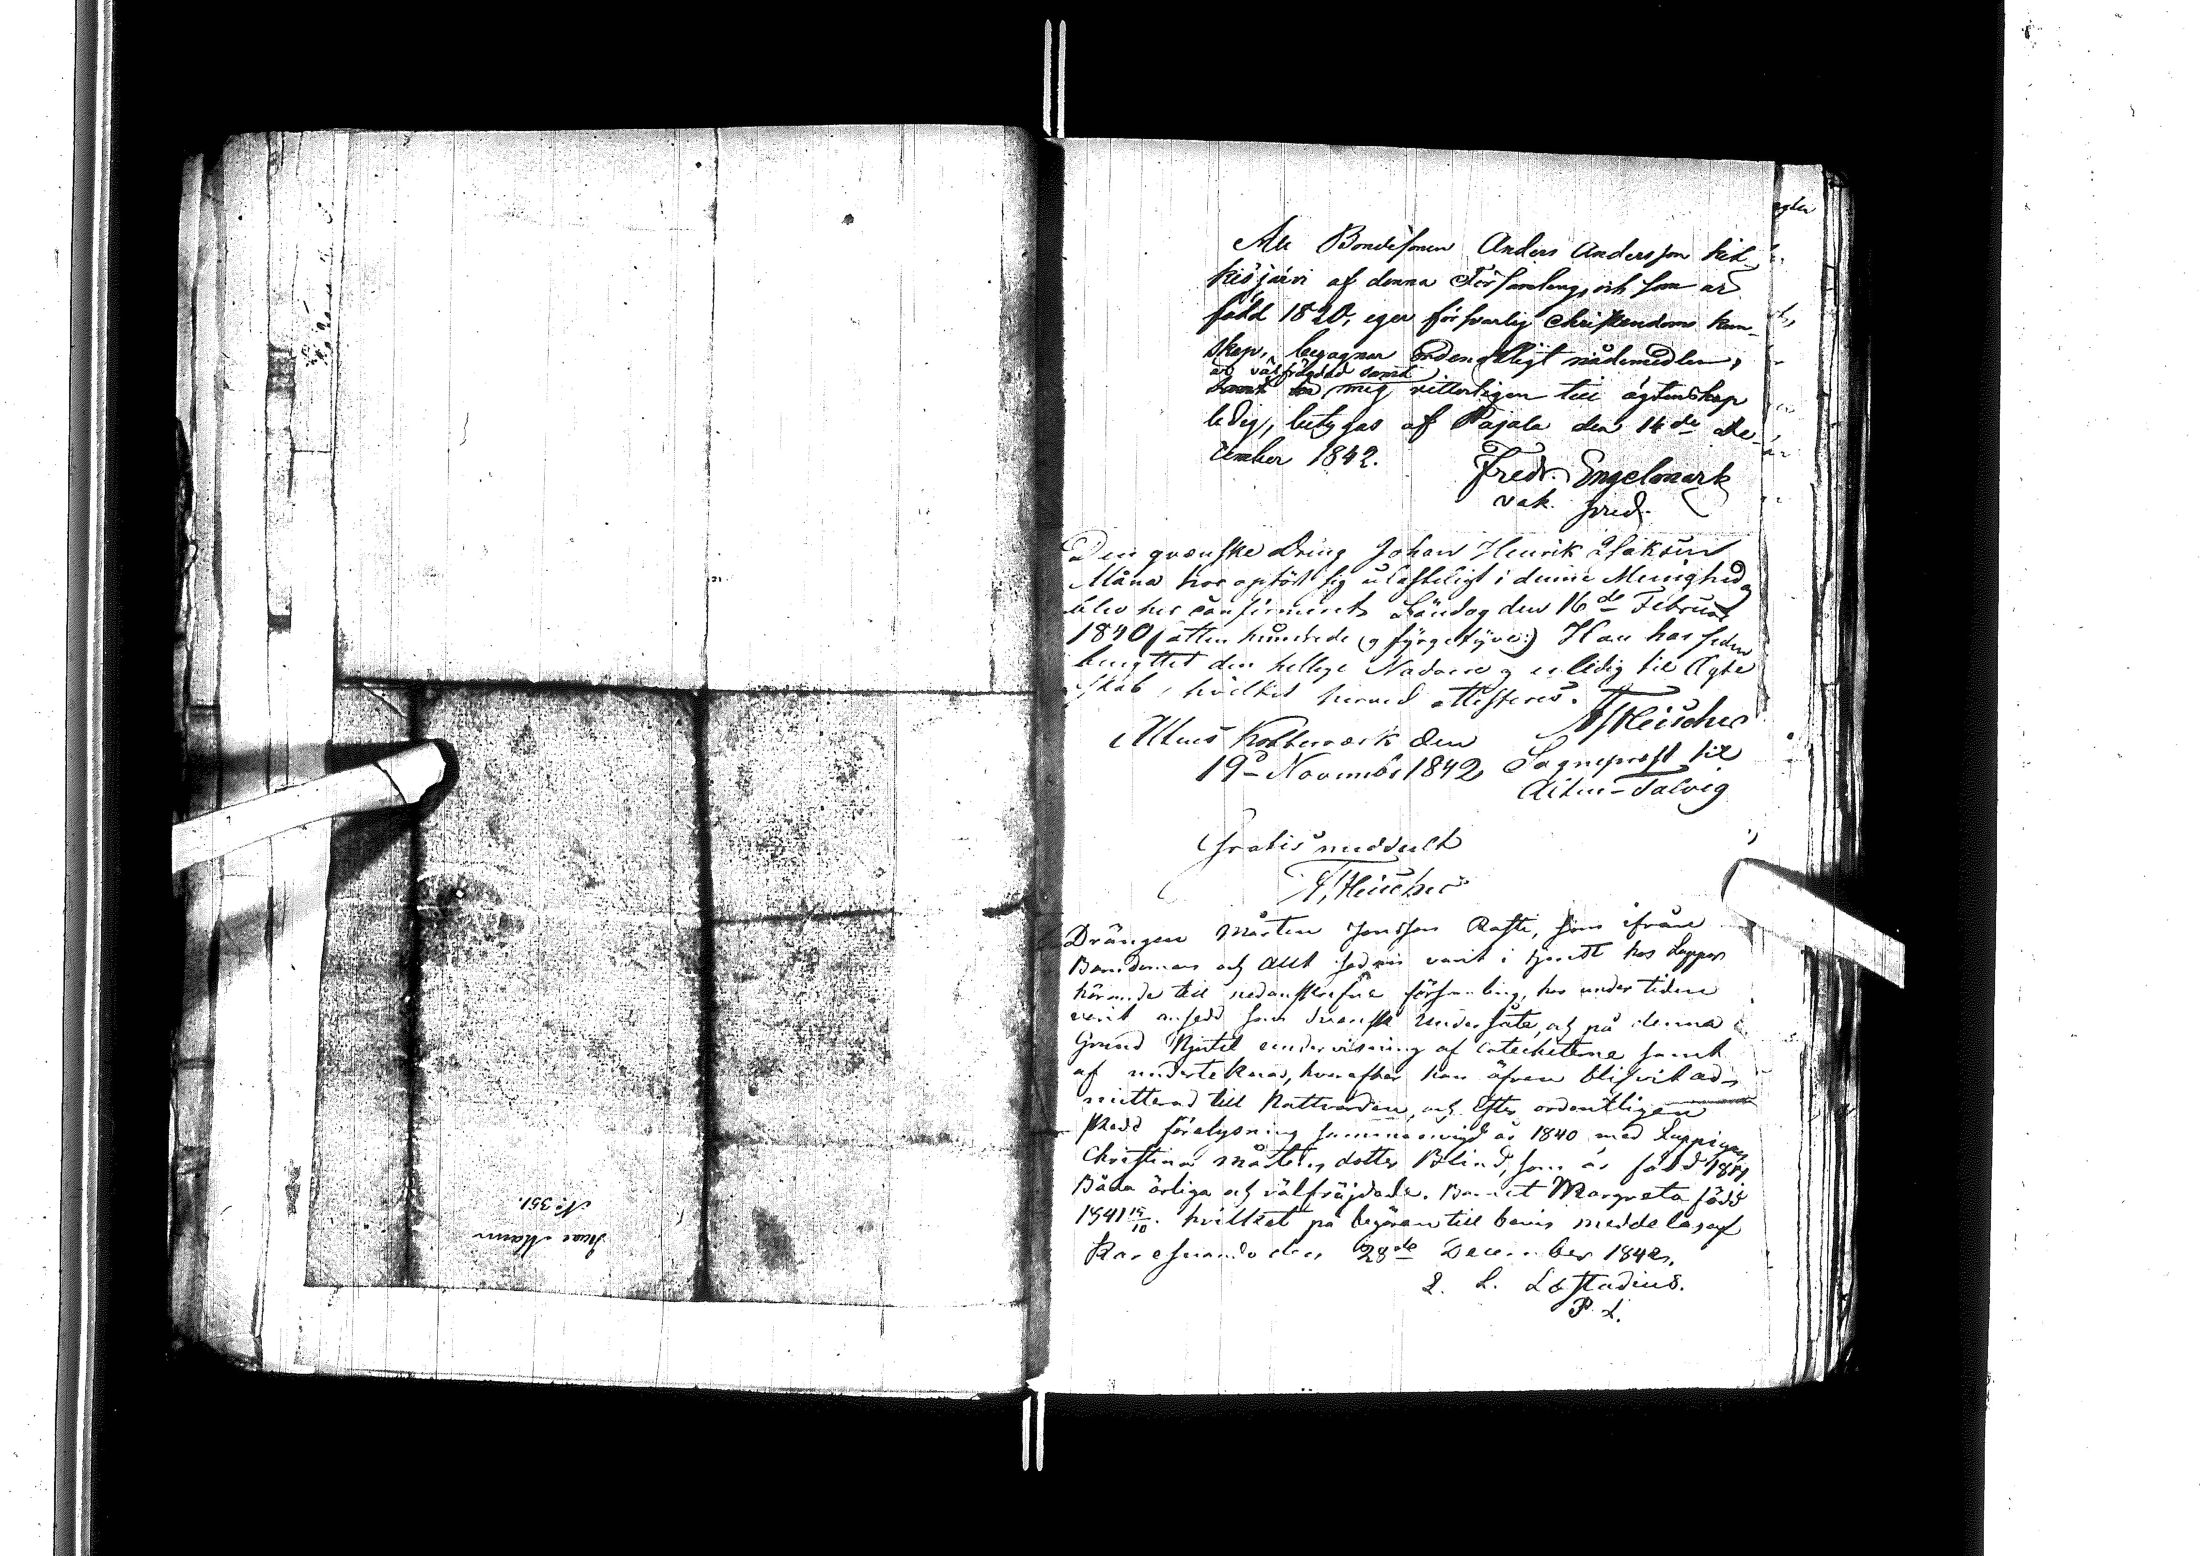 Att Bondesonen Anders Andersson Kih-
lisjärvi af denna Församling, och som är
född 1820, eger försvarlig Christendoms kun-
skap, begagnar ordentligt nådemedlen,
är välfräjdad samt
mig vitterligen till ägtenskap
ledig, betygas af Pajala den 14de De-
cember 1842.
Fredr. Engelmark
vak. pred.
Den qvænske Dreng Johan Henrik Isaksen
Mäna har opført sig ulasteligt i denne Menighed,
blev her confirmeret Søndag den 16de Februar
1840 (:atten hundrede og fyrgetyve:) Han har siden
benyttet den hellige Nadvere og er ledig til Ægte-
skab, hvilket herved attesteres.
Altens Kobberværk den
19de November 1842
Sogneprest til
Alten-Talvig
Gratis meddeelt
Drängen Mårten Jonsson Rasti, som ifrån
Barndomen och allt sedan varit i tjenst hos Lappar
hörande till nedanskrefne församling, har under tiden
varit ansedd som Svensk Undersåte, och på denna
Grund Njutit undervisning af Catecheterne samt
af undertecknad, hvarefter han äfven blifvit ad-
mitterad till Nattvarden, och efter ordentligen
skedd förelysning sammanvigd år 1840 med Lappigan
Christina Mårtens dotter Blind, som är född
Båda ärliga och välfräjdade. Barnet Margreta född
1841 19/10. hvilket på begäran till bevis meddelas af
Karesuando den 28de December 1842.
L. L. Læstadius.
P. L.
No 351.